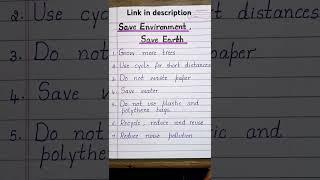 Link in description
Save Environment,
Save Earth
1. Grow more trees
2. Use cycle for short distances
3. Do not waste paper
4. Save water
5. Do not use plastic and
polythene bags.
6. Recycle, reduce and reuse
7. Reduce noise pollution
2. Use cy
distances
3. Do no
4. Save
5. Do not
polythe
c and